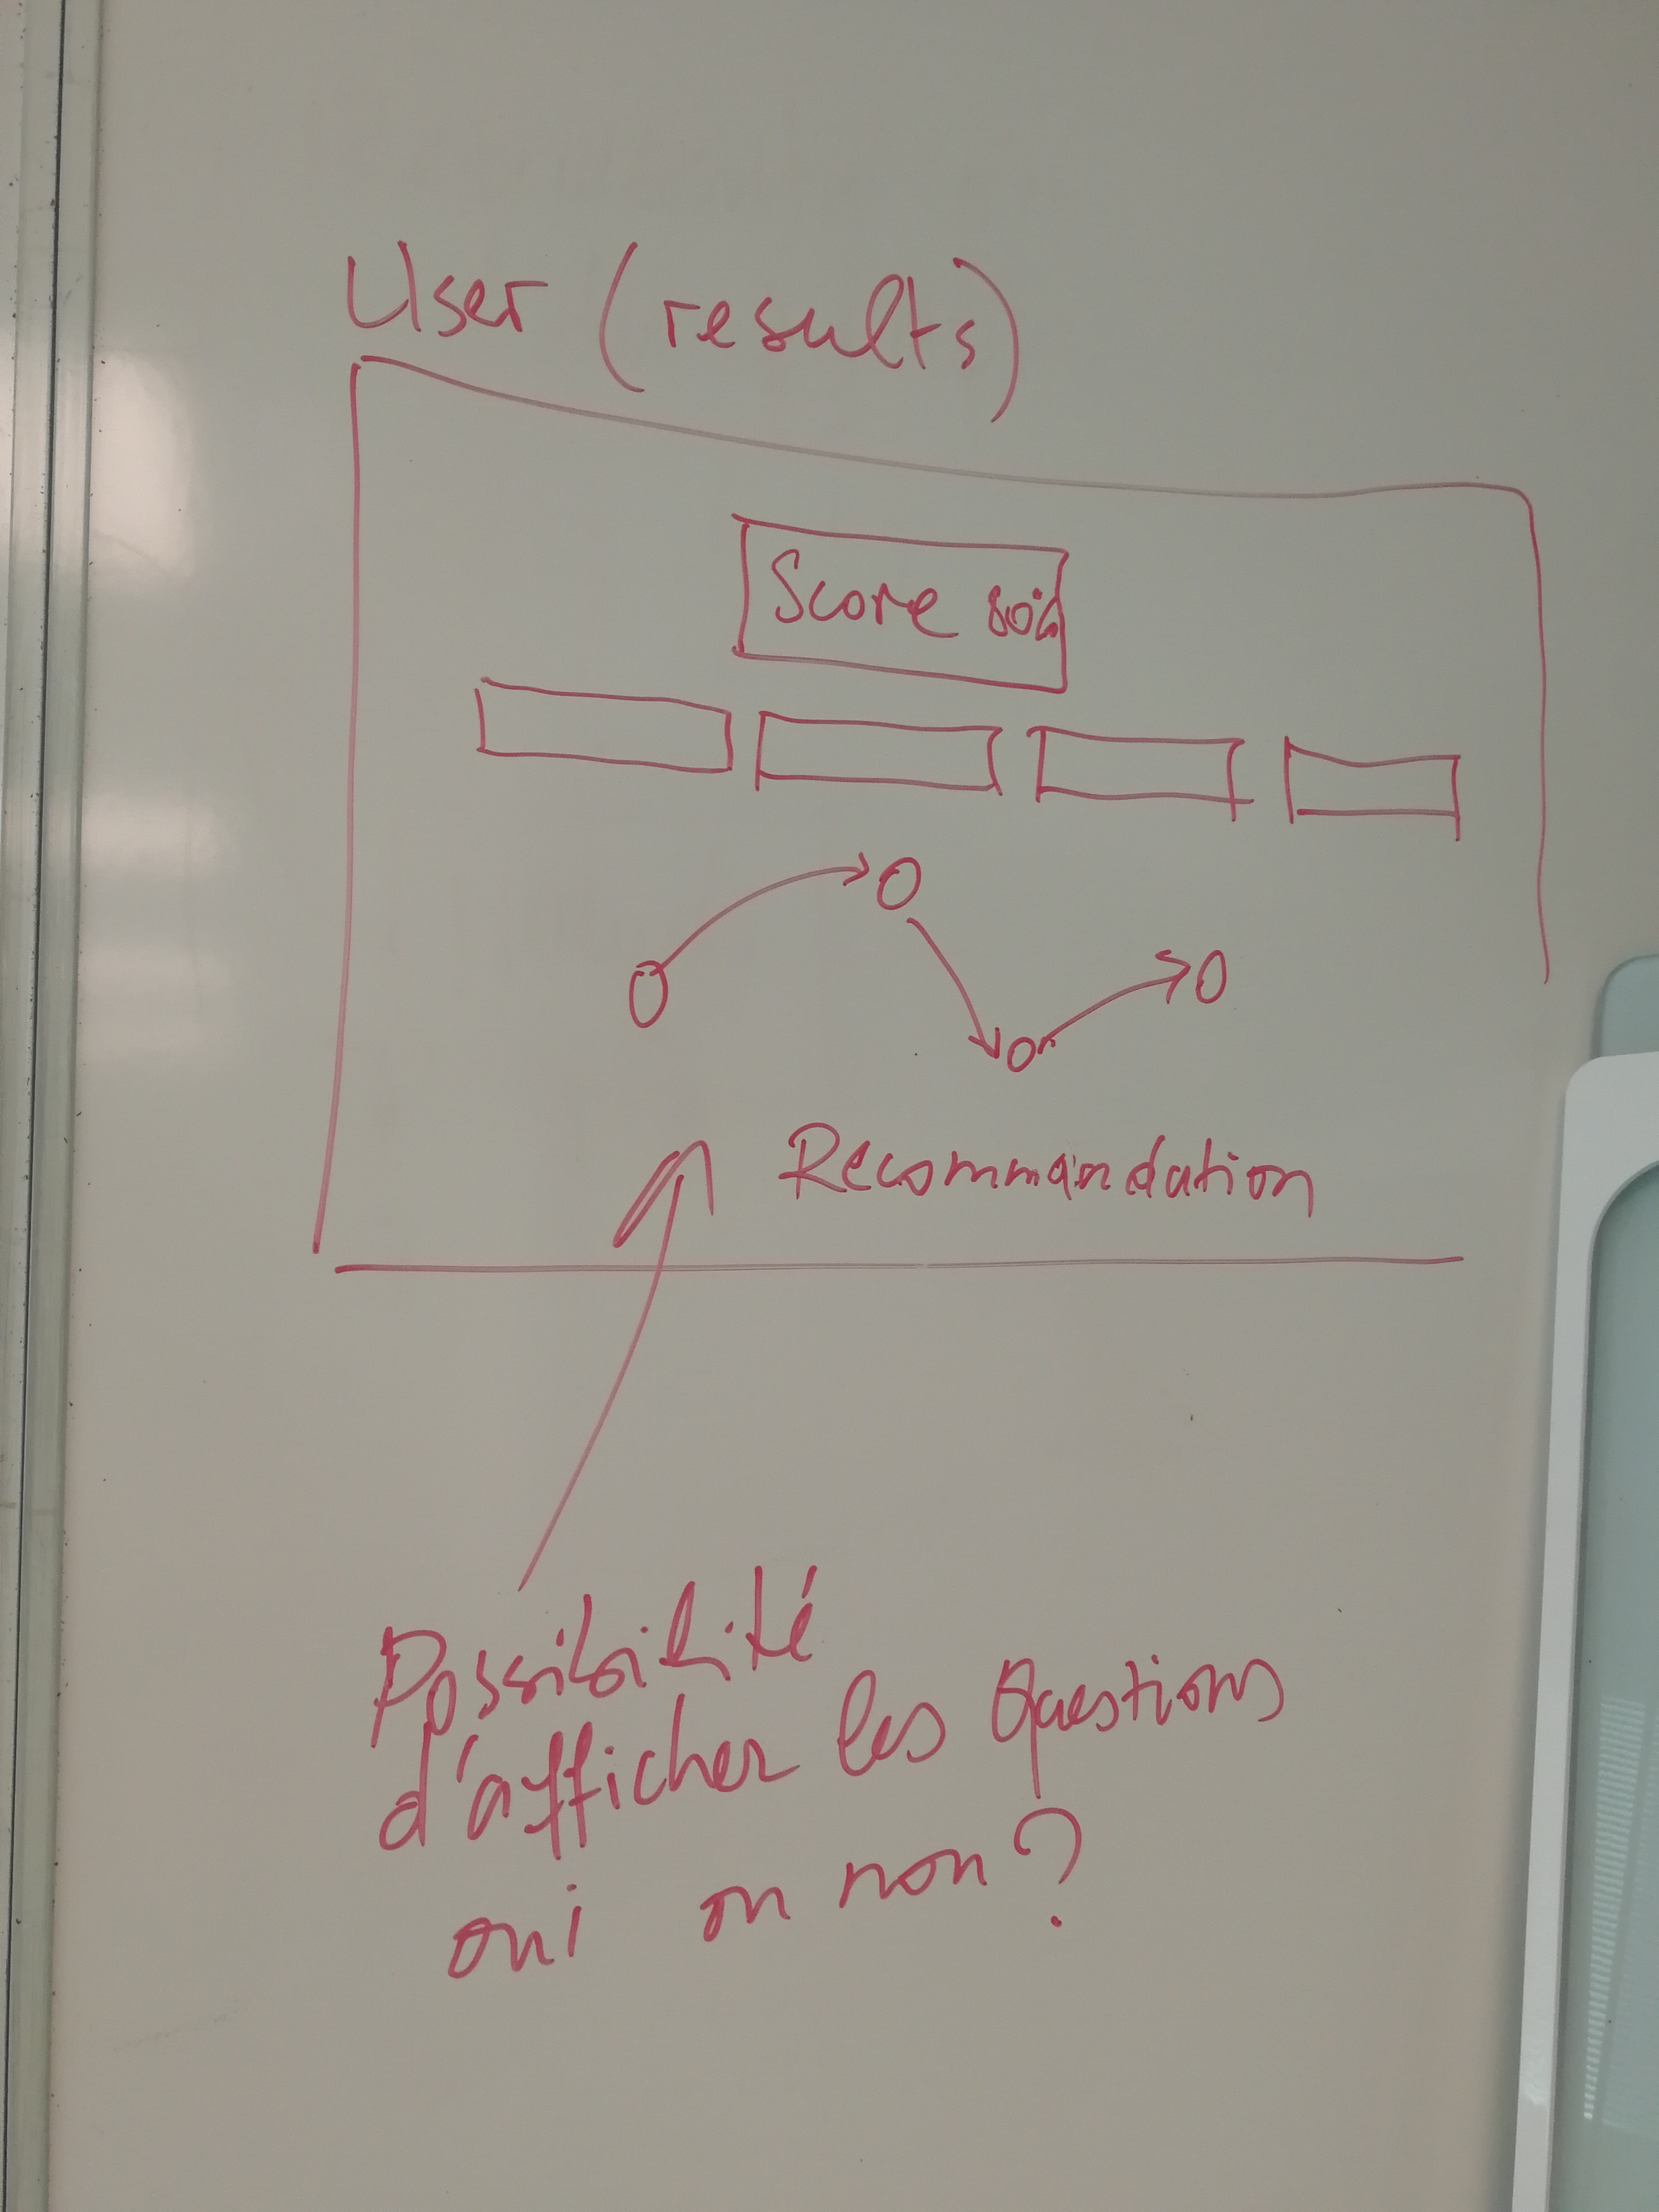 User (results)
Score 80%
Recommandation
Possibilité
d'afficher les Questions
oui ou non?